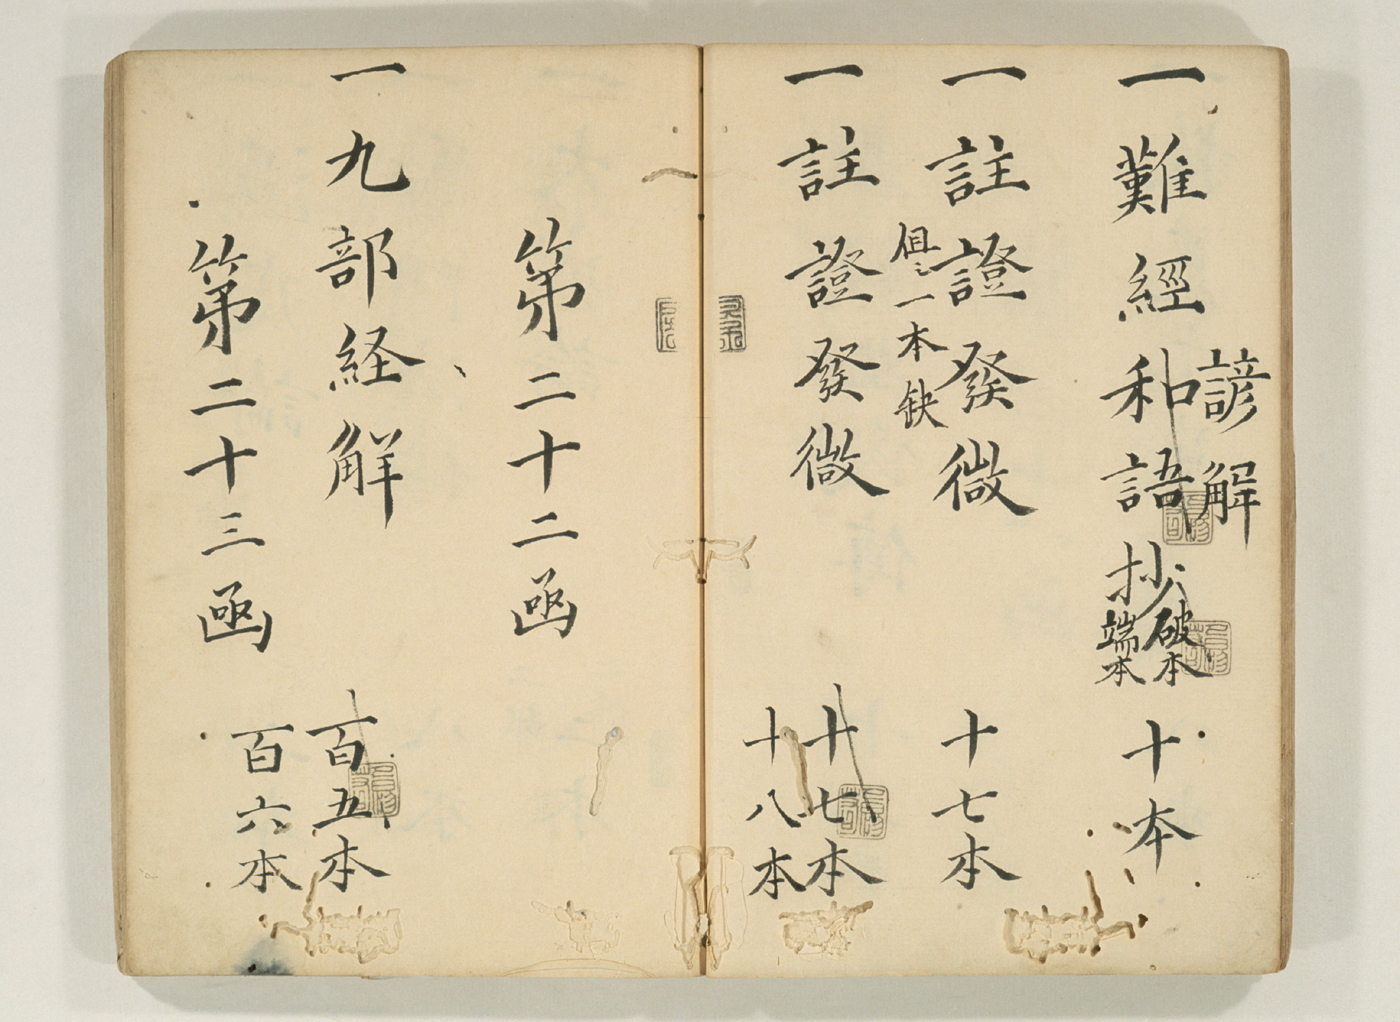 諺解
一難經和語抄 破本 端本 十本
一註證發微 十七本
俱ニ一本缺
一註證發微 十七本
十八本
第二十二函
一九部経解 百五本
百六本
第二十三函